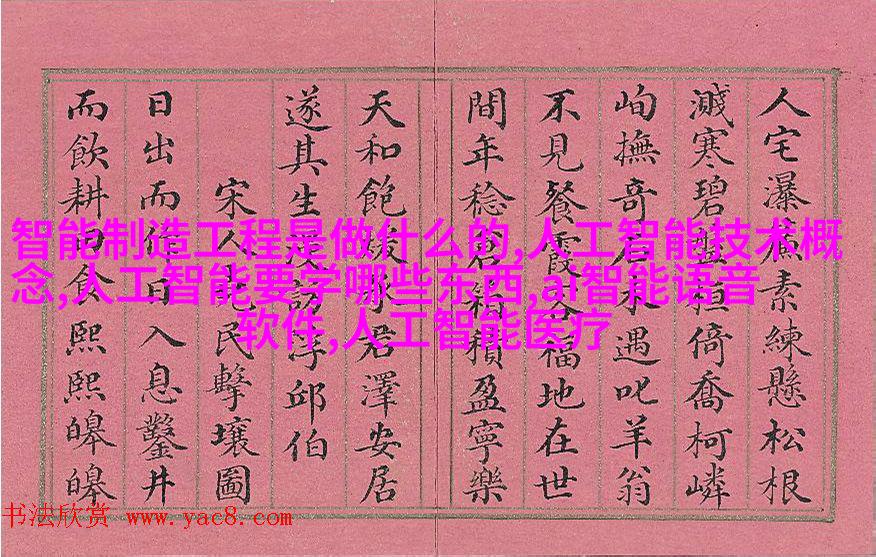 人宅瀑素練懸松根
濺寒碧盤桓倚喬柯嶙
峋撫奇石永遇叱羊翁
不見餐霞谷福地在世
間年稔倉箱積盈寧樂
天和飽煖承君澤安居
遂其生訪浮邱伯
宋人民擊壤圖
日出而作日入息鑿井
而飲耕田食熙熙皞皞
智能制造工程是做什么的,人工智能技术概
念,人工智能要学哪些东西,ai智能语音
软件,人工智能医疗
书法欣赏 www.yac8.com